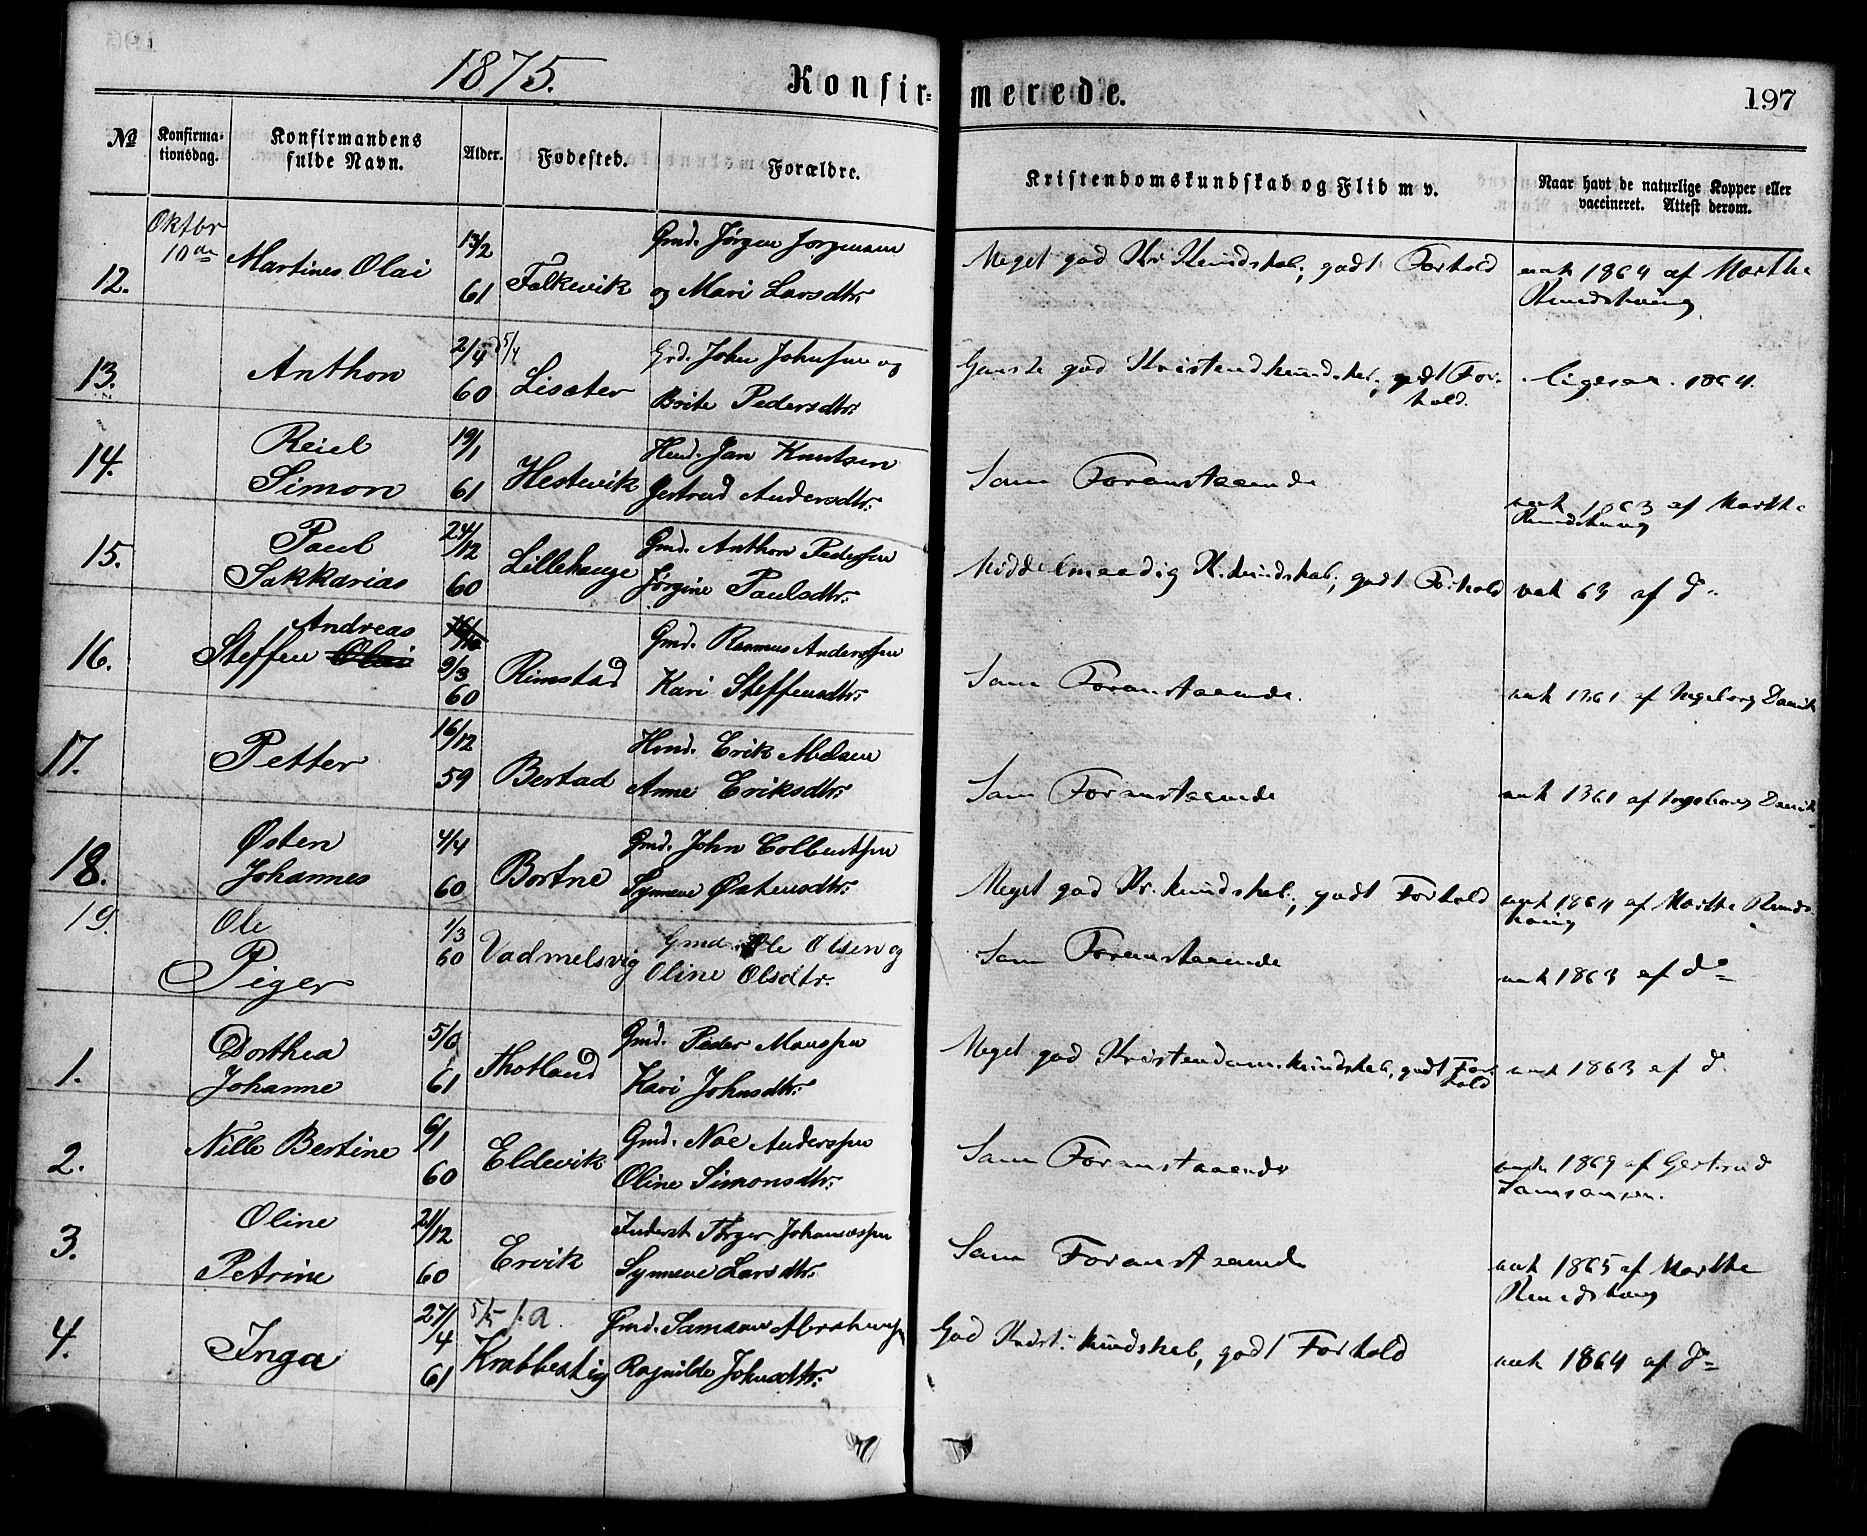 1875.
Konfir-merede.
197
No
Konfirma-tionsdag.
Konfirmandens fulde Navn.
Alder.
Fødested.
Forældre.
Kristendomskundskab og Flid m v.
Naar havt de naturlige Kopper eller vaccineret. Attest derom.
Oktbr 10de
12. Martines Olai 13/2 61 Falkevik Gmd. Jørgen Jørgensen og Mari Larsdtr. Meget god Kr. Kundskab, godt Forhold vak 1864 af Marthe
13. Anthon 2/4 5/4 60 Lisæter Grd. John Johnsen og Brite Pedersdtr. Ganske god godt Forhold. ligesaa. 1864.
14. Reiel Simon 19/1 61 Hestevik Jan Knutsen Gertrud Andersdtr. Som Foranstaaende vak 1863 af Marthe
15. Paul Sakkarias 24/12 60 Lillehauge Gmd. Anthon Pedersen Jørgine Paulsdtr. Middelmaadig K. kundskab, godt Forhold vak 63 af do
16. Steffen Andreas Olai 9/3 60 Rimstad Gmd. Rasmus Anderssen Kari Steffensdtr. Som Foranstaaende. vak 1861 af Ingeborg
17. Petter 16/12 59 Berstad Erik Anne Eriksdtr. Som Foranstaaende vak 1861 af Ingeborg
18. Østen Johannes 4/4 60 Bortne Gmd. John Colbentsen Synneve Østensdtr. Meget god Kr. kundskab, godt Forhold vak 1864 af Marthe
19. Ole 1/3 60 Vadmelsvig Gmd. Ole Olsen og Oline Olsdtr. Som Foranstaaende vak 1863 af do
Piger
1. Dorthea Johanne 5/6 61 Thotland Gmd. Peder Monssen Kari Johnsdtr. Meget god Kristendomskundskab, godt Forhold vak 1863 af do
2. Nille Bertine 6/1 60 Eldevik Gmd. Noe Anderssen Oline Simonsdtr. Som Foranstaaende vak 1869 af Gertrud Samsonsen.
3. Oline Petrine 21/12 60 Ervik Inderst Johannessen Synneve Larsdtr. Som Foranstaaende vak 1865 af Marthe
4. Inga 27/4 61 Krabbestig Gmd. Samson Ragnilde Johnsdtr. God Krist. kundskab, godt Forhold vak 1864 af do